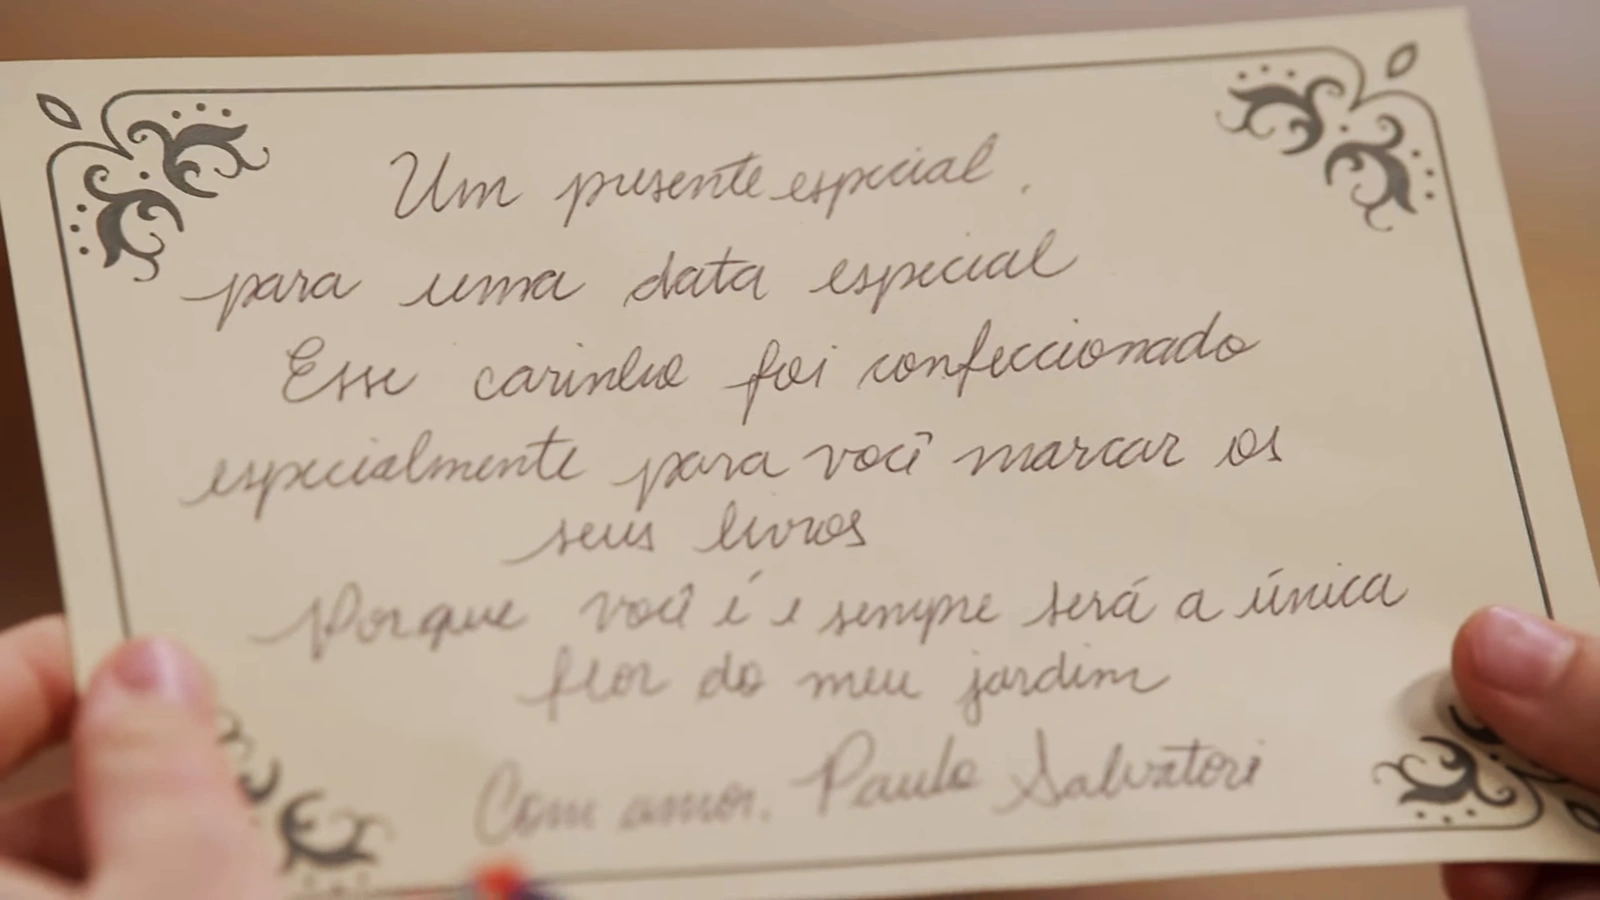 Um presente especial.
para uma data especial
Esse carinho foi confeccionado
especialmente para você marcar os
seus livros
Porque você é e sempre será a única
flor do meu jardim
Com amor. Paulo Salvatori